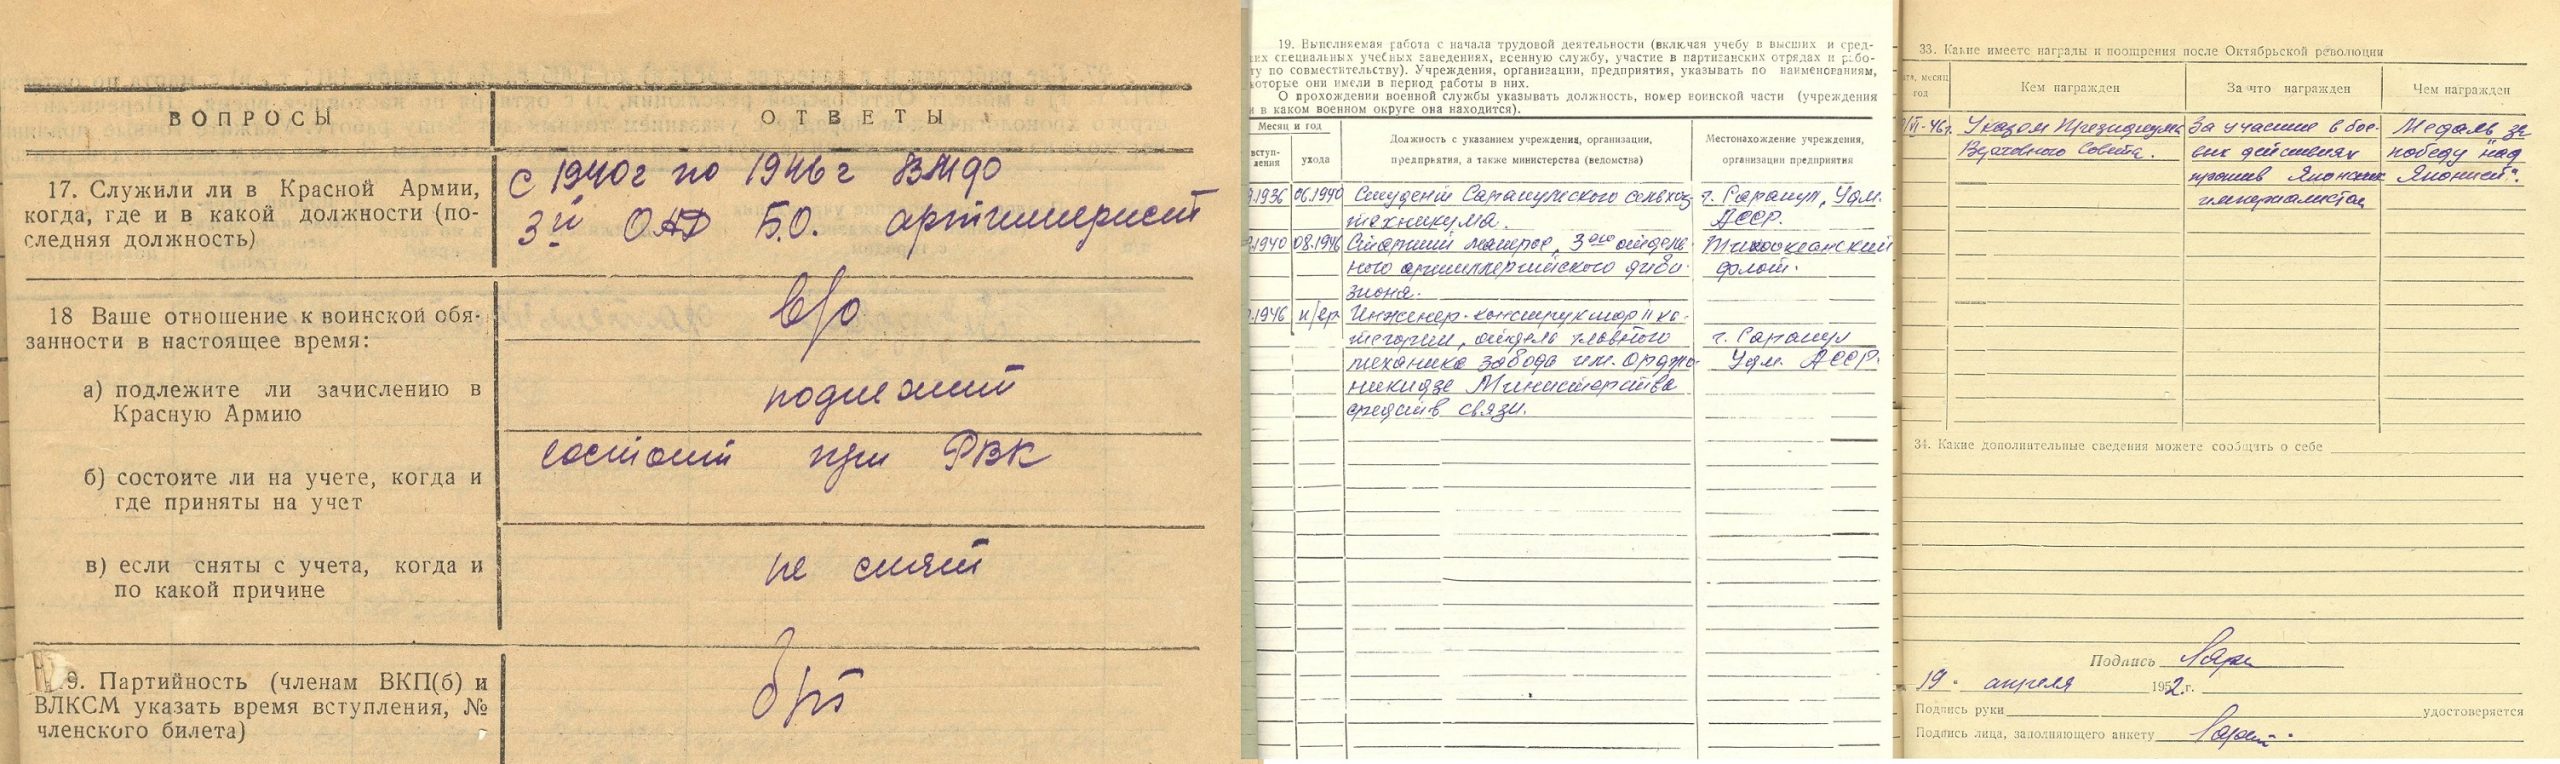 ВОПРОСЫ
ОТВЕТЫ
17. Служили ли в Красной Армии,
когда, где и в какой должности (по-
следняя должность)
с 1940г по 1946г
3й ОАД Б.О. артиллерист
18 Ваше отношение к воинской обя-
занности в настоящее время:
в/о
а) подлежите ли зачислению в
Красную Армию
подлежит
б) состоите ли на учете, когда и
где приняты на учет
состоит при РВК
в) если сняты с учета, когда и
по какой причине
не снят
9. Партийность (членам ВКП(б) и
ВЛКСМ указать время вступления, №
членского билета)
б/п
19. Выполняемая работа с начала трудовой деятельности (включая учебу в высших и сред-
их специальных учебных заведениях, военную службу, участие в партизанских отрядах и рабо-
ту по совместительству). Учреждения, организации, предприятия, указывать по наименованиям,
которые они имели в период работы в них.
О прохождении военной службы указывать должность, номер воинской части (учреждения
и в каком военном округе она находится).
Месяц и год
вступ-
ления
ухода
Должность с указанием учреждения, организации,
предприятия, а также министерства (ведомства)
Местонахождение учреждения,
организации предприятия
.1936 06.1940 Студент Сарапульского сельхоз. г. Сарапул, Удм.
техникума. АССР.
.1940 08.1946 Старший матрос, 3го отдель- Тихоокеанский
ного артиллерийского диви- флот.
зиона.
.1946 н/вр Инженер-конструктор II ка-
тегории, отдела главного г. Сарапул
механика завода им. Орджо- Удм. АССР.
никидзе Министерства
средств связи.
33. Какие имеете награды и поощрения после Октябрьской революции
месяц
год
Кем награжден
За что награжден
Чем награжден
/VI-46г. Указом Президиума За участие в бое- Медаль за
Верховного Совета. вых действиях победу "над
против Японских Японией".
империалистов
34. Какие дополнительные сведения можете сообщить о себе
Подпись
19. апреля 1952 г.
Подпись руки удостоверяется
Подпись лица, заполняющего анкету